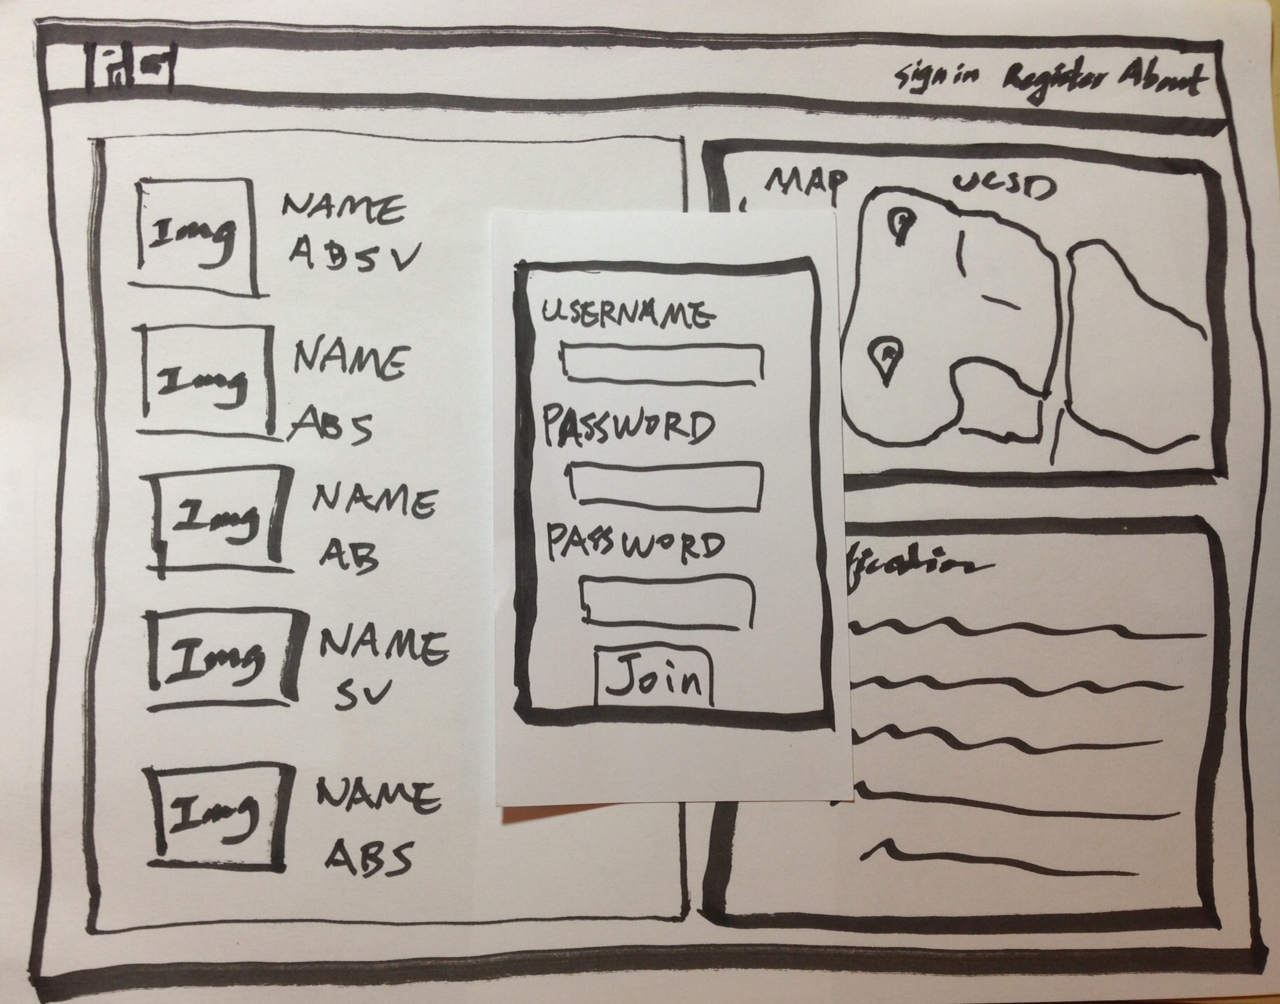 Sign in Register About
Img
NAME
ABSV
Img
NAME
ABS
Img
NAME
AB
Img
NAME
SV
Img
NAME
ABS
MAP UCSD
USERNAME
PASSWORD
PASSWORD
Join
fication